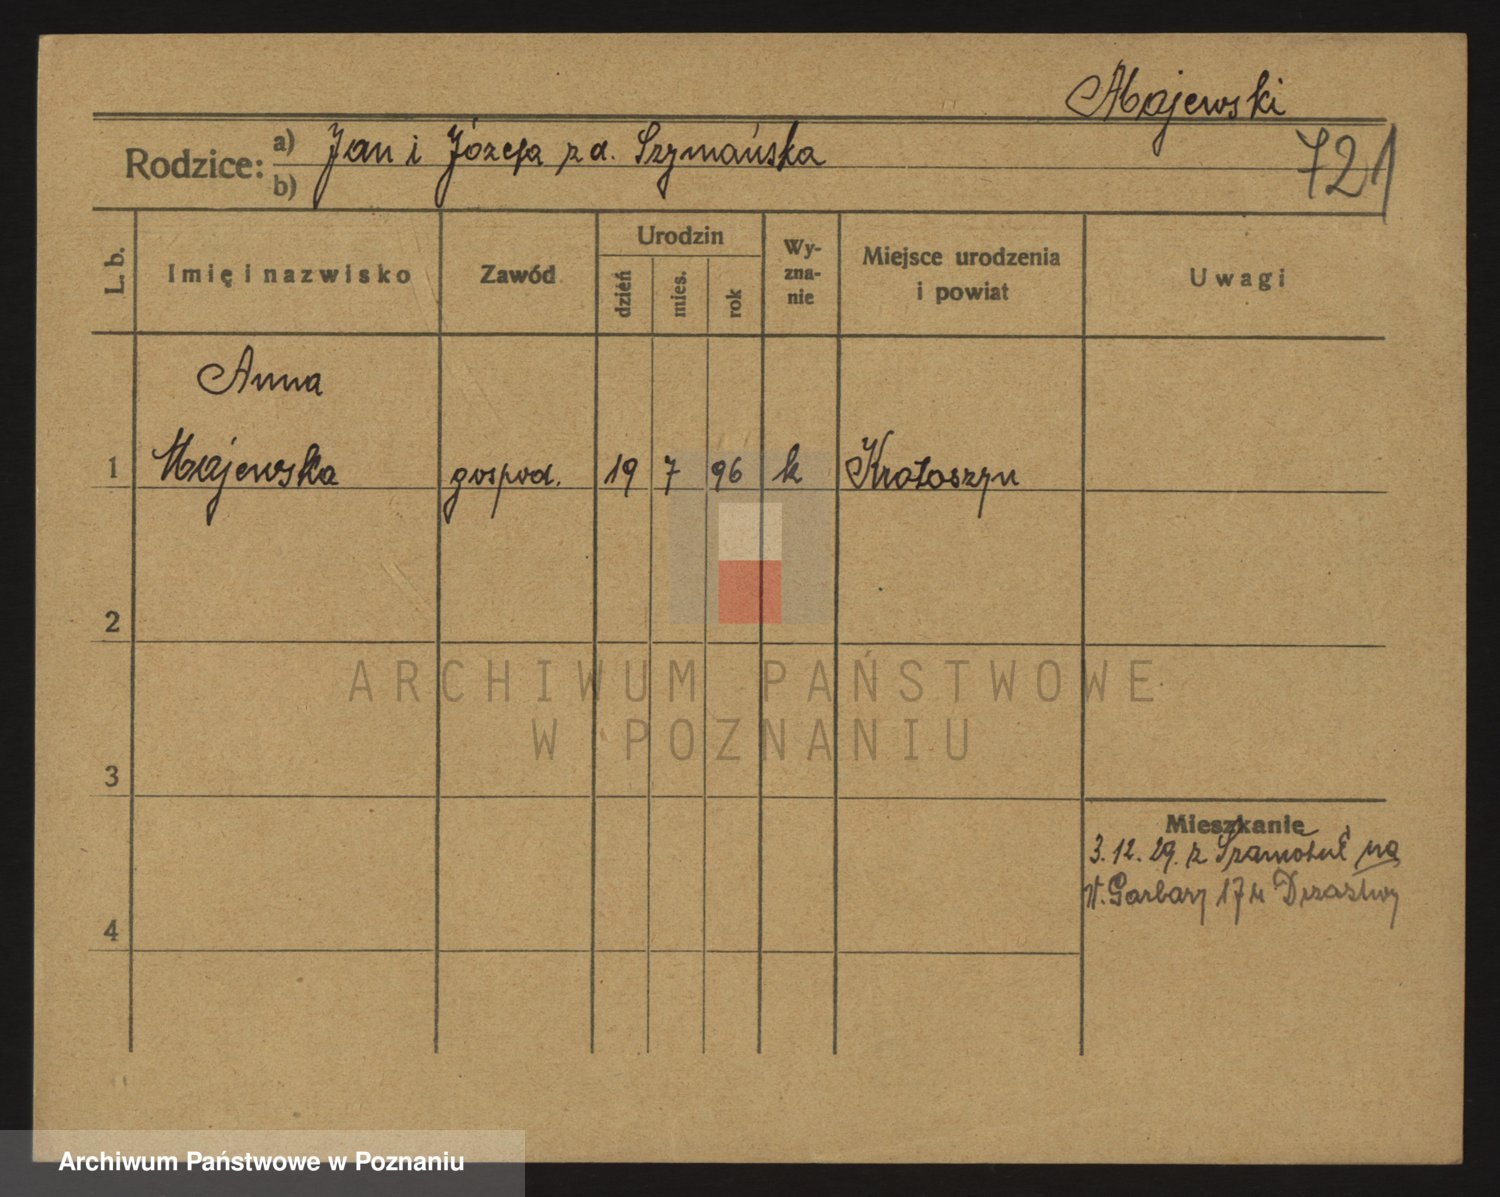 Majewski
Rodzice: a) Jan i Józefa z d. Szymańska
b)
721
L. b.
Imię i nazwisko
Zawód
Urodzin
dzień
mies.
rok
Wy-
zna-
nie
Miejsce urodzenia
i powiat
Uwagi
Anna
1 Majewska gospod. 19 7 96 k Krotoszyn
2
3
4
Mieszkanie
3. 12. 29. z Szamotuł na
W. Garbary 17 u
ARCHIWUM PAŃSTWOWE
W POZNANIU
Archiwum Państwowe w Poznaniu